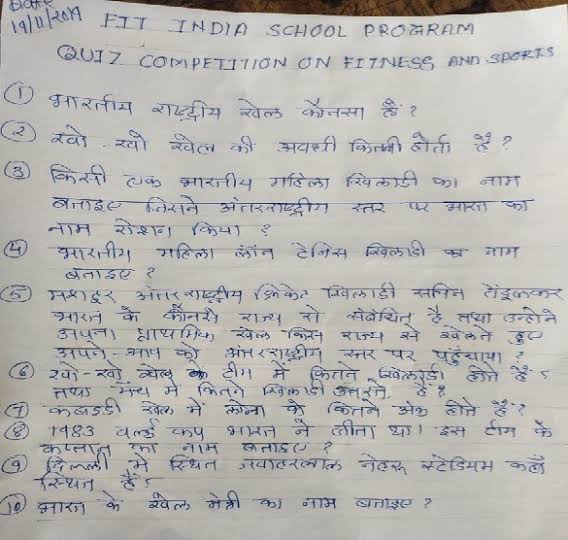 Date
19/11/2019
FIT INDIA SCHOOL PROGRAM
QUIZ COMPETITION ON FITNESS AND SPORTS
① भारतीय राष्ट्रीय खेल कौनसा है?
② खो-खो खेल की अवधी कितनी होती है?
③ किसी एक भारतीय महिला खिलाडी का नाम
बताइए जिसने अंतरराष्ट्रीय स्तर पर भारत का
नाम रोशन किया?
④ भारतीय महिला लॉन टेनिस खिलाडी का नाम
बताइए?
⑤ मशहूर अंतरराष्ट्रीय क्रिकेट खिलाडी सचिन तेंडूलकर
भारत के कौनसे राज्य से संबंधित है तथा उन्होंने
अपना प्राथमिक खेल किस राज्य से खेलते हुए
अपने-आप को अंतरराष्ट्रीय स्तर पर पहुंचाया?
⑥ खो-खो खेल की टीम में कितने खिलाडी होते है?
तथा मैच में कितने खिलाडी उतरते है?
⑦ कबड्डी खेल में लोना के कितने अंक होते है?
⑧ 1983 वर्ल्ड कप भारत ने जीता था। इस टीम के
कप्तान का नाम बताइए?
⑨ दिल्ली में स्थित जवाहरलाल नेहरू स्टेडियम कहाँ
स्थित है?
⑩ भारत के खेल मंत्री का नाम बताइए?